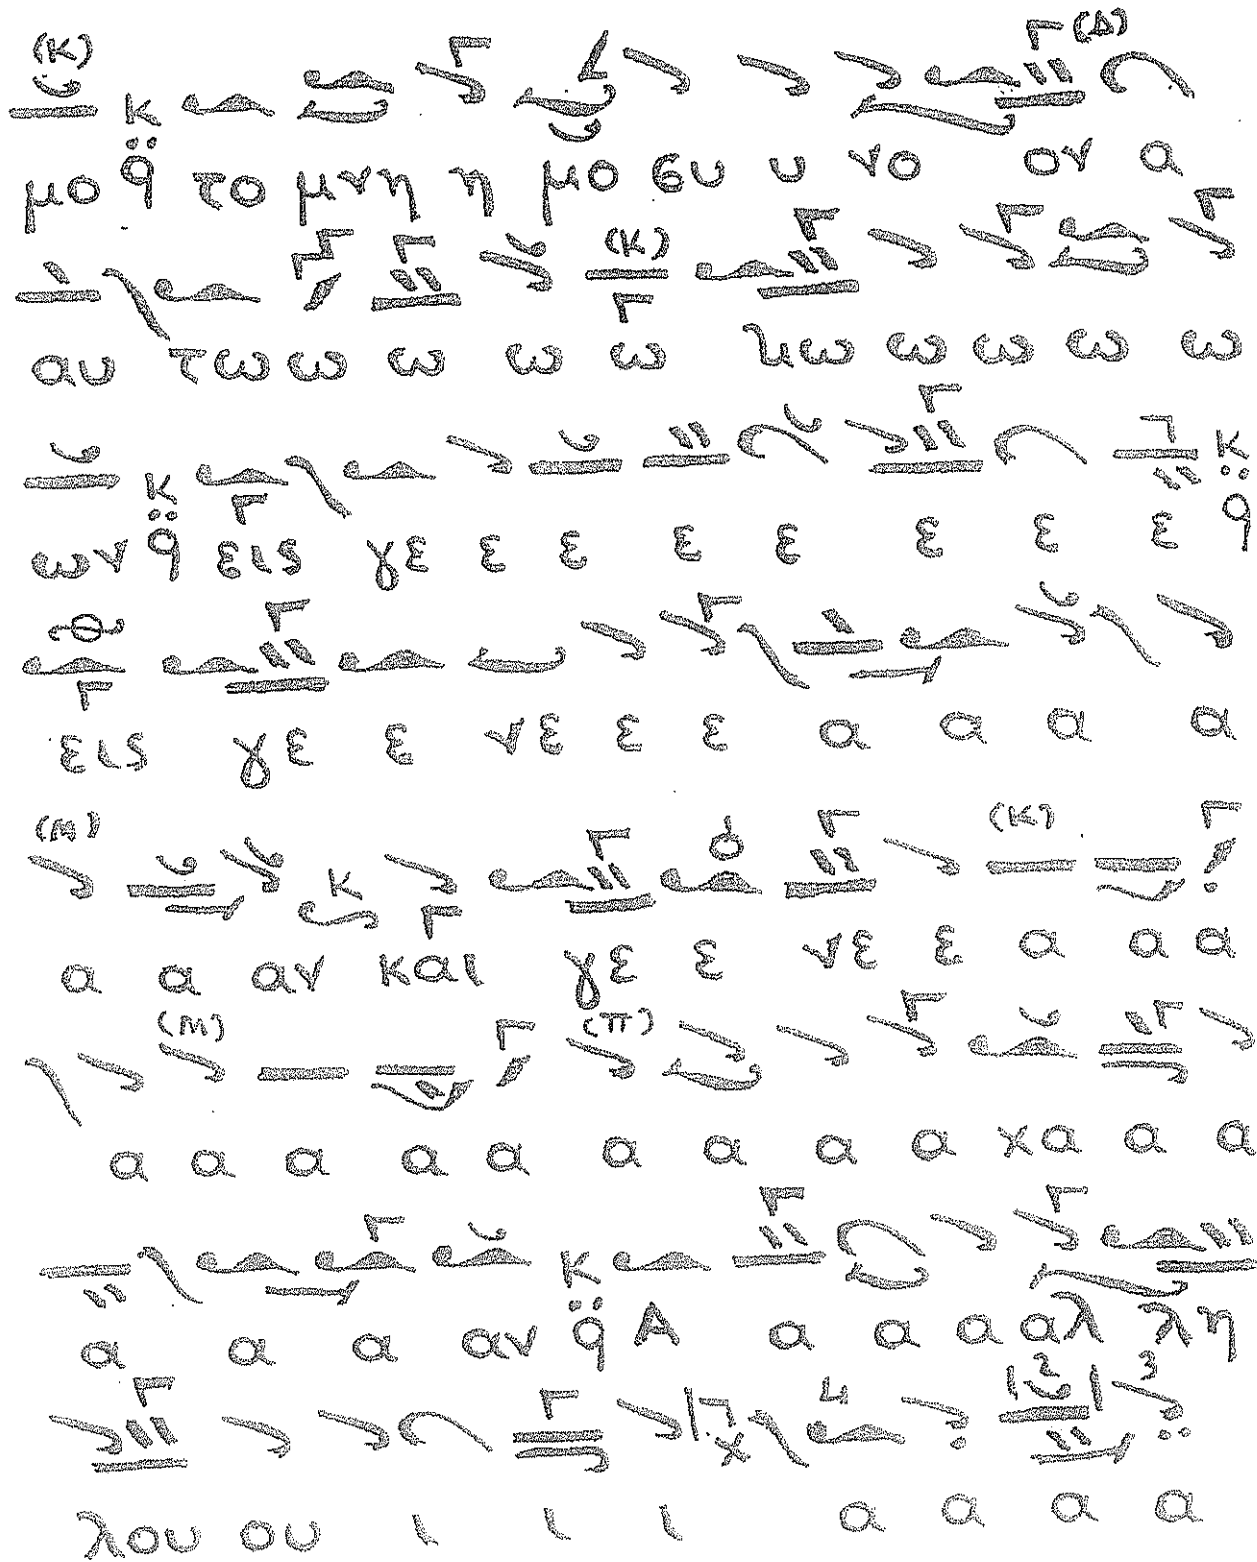 (Κ) Γ (Δ)
μο κ̈ q το μνη η μο συ υ νο ον α
(Κ)
αυ τω ω ω ω ω κω ω ω ω ω
ων κ̈ q εις γε ε ε ε ε ε ε ε κ̈ q
εις γε ε νε ε ε α α α α
(Μ) (Κ)
α α αν και γε ε νε ε α α α
(Μ) (Π)
α α α α α α α α α χα α α
α α α αν κ̈ q Α α α α αλ λη
2 3
4
λου ου ι ι ι α α α α